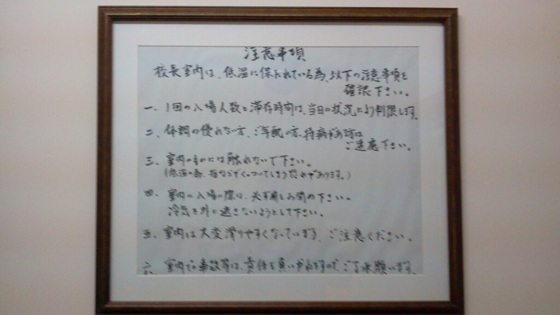 注意事項
校長室内は、低温に保たれている為、以下の注意事項を
確認下さい。
一、1回の入場人数と滞在時間は、当日の状況により制限します。
二、体調の優れない方、ご年配の方、持病がある方は
ご遠慮下さい。
三、室内のものには触れないで下さい。
(低温の為、指などがくっついてしまう 恐れがあります。)
四、室内に入場の際は、必ず扉をお閉め下さい。
冷気を外に逃さないようにして下さい。
五、室内は大変滑りやすくなっています。ご注意ください。
六、室内での事故等は、責任を負いかねますので、ご了承願います。